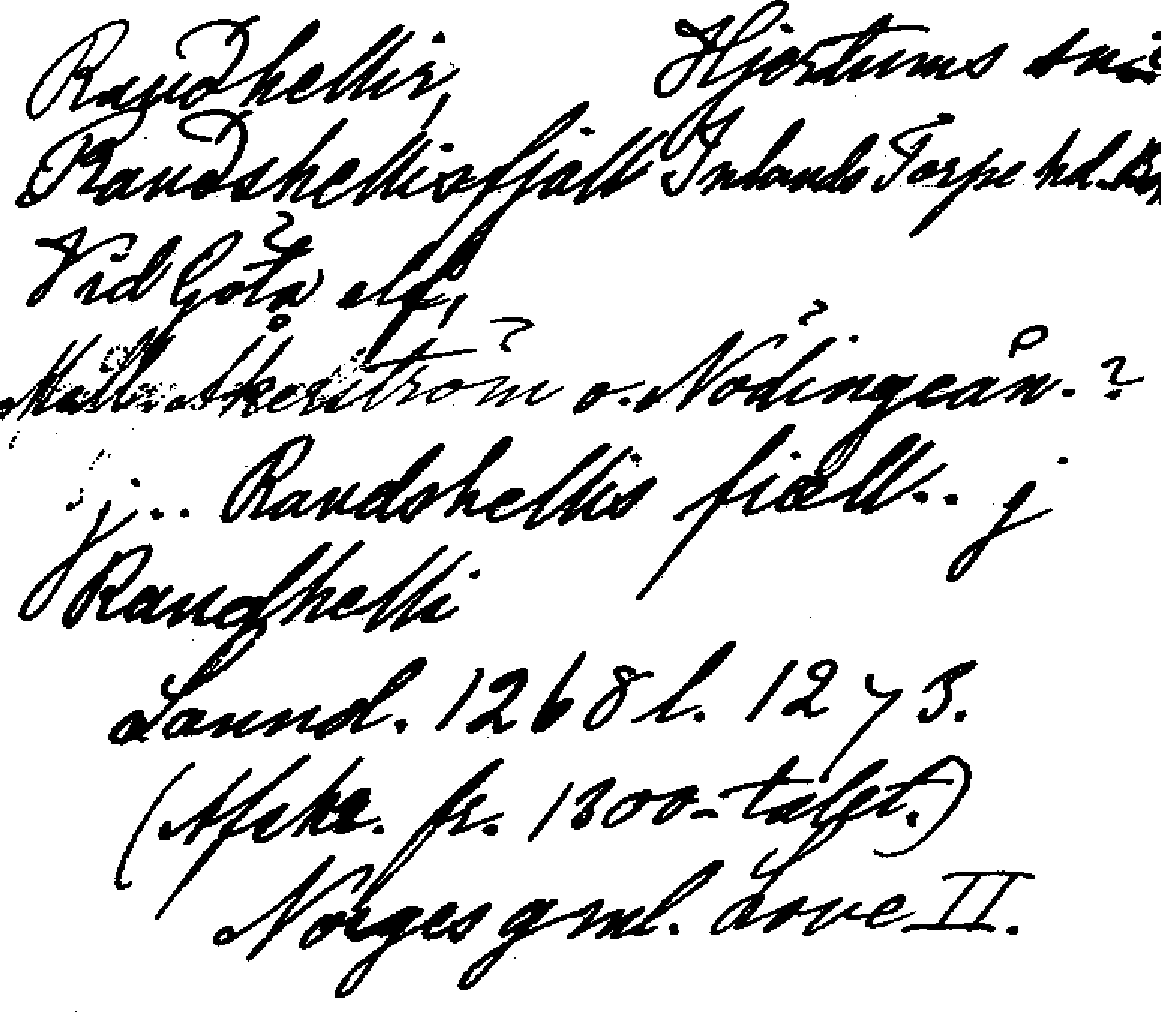 Raudhellir, Hjärtums sn
Raudshellisfjäll Inlands Torpe hd. Boh
Vid Göta elf,
Mell. Åkerström o. Nödingeån. ?
j.. Raudshellis fiæll.. j
Raudhelli
Lannd. 1268 l. 1273.
(Afskr. fr. 1300-talet.)
Norges gml. Love II.